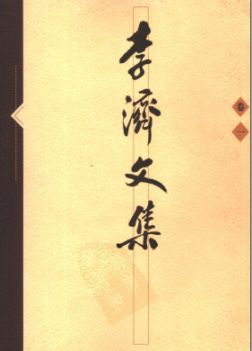 李濟文集
卷一